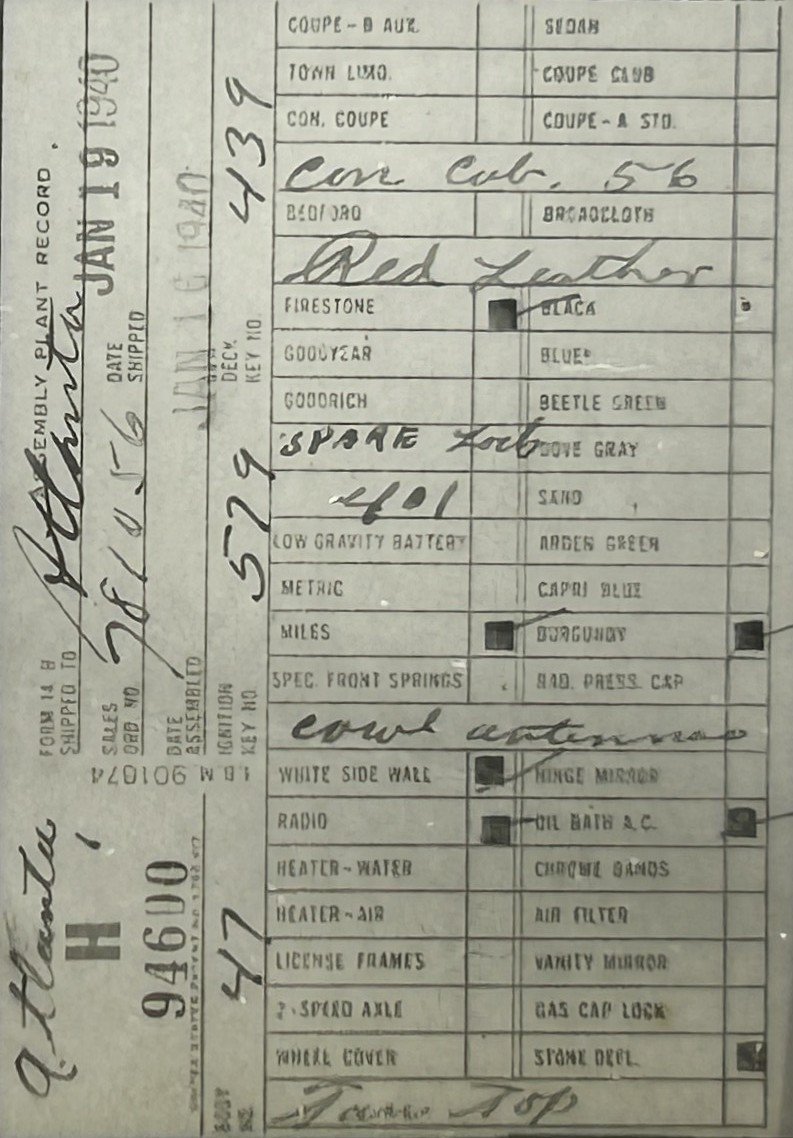 ASSEMBLY PLANT RECORD
FORM 14 B
SHIPPED TO Atlanta JAN 19 1940
SALES ORD NO. 781056 DATE SHIPPED
DATE ASSEMBLED JAN 16 1940
IGNITION KEY NO. 579 DECK KEY NO. 439
I B M 901074
Atlanta
H
94600
BODY NO. 47
COUPE-B AUX. SEDAN
TOWN LIMO. COUPE CLUB
CON. COUPE COUPE-A STD.
Con Cab. 56
BEDFORD BROADCLOTH
Red Leather
FIRESTONE BLACK
GOODYEAR BLUE
GOODRICH BEETLE GREEN
SPARE Lock DOVE GRAY
401 SAND
LOW GRAVITY BATTERY ARDEN GREEN
METRIC CAPRI BLUE
MILES BURGUNDY
SPEC. FRONT SPRINGS RAD. PRESS. CAP
cowl antenna
WHITE SIDE WALL HINGE MIRROR
RADIO OIL BATH A.C.
HEATER-WATER CHROME BANDS
HEATER-AIR AIR FILTER
LICENSE FRAMES VANITY MIRROR
2-SPEED AXLE GAS CAP LOCK
WHEEL COVER STONE DEFL.
Top